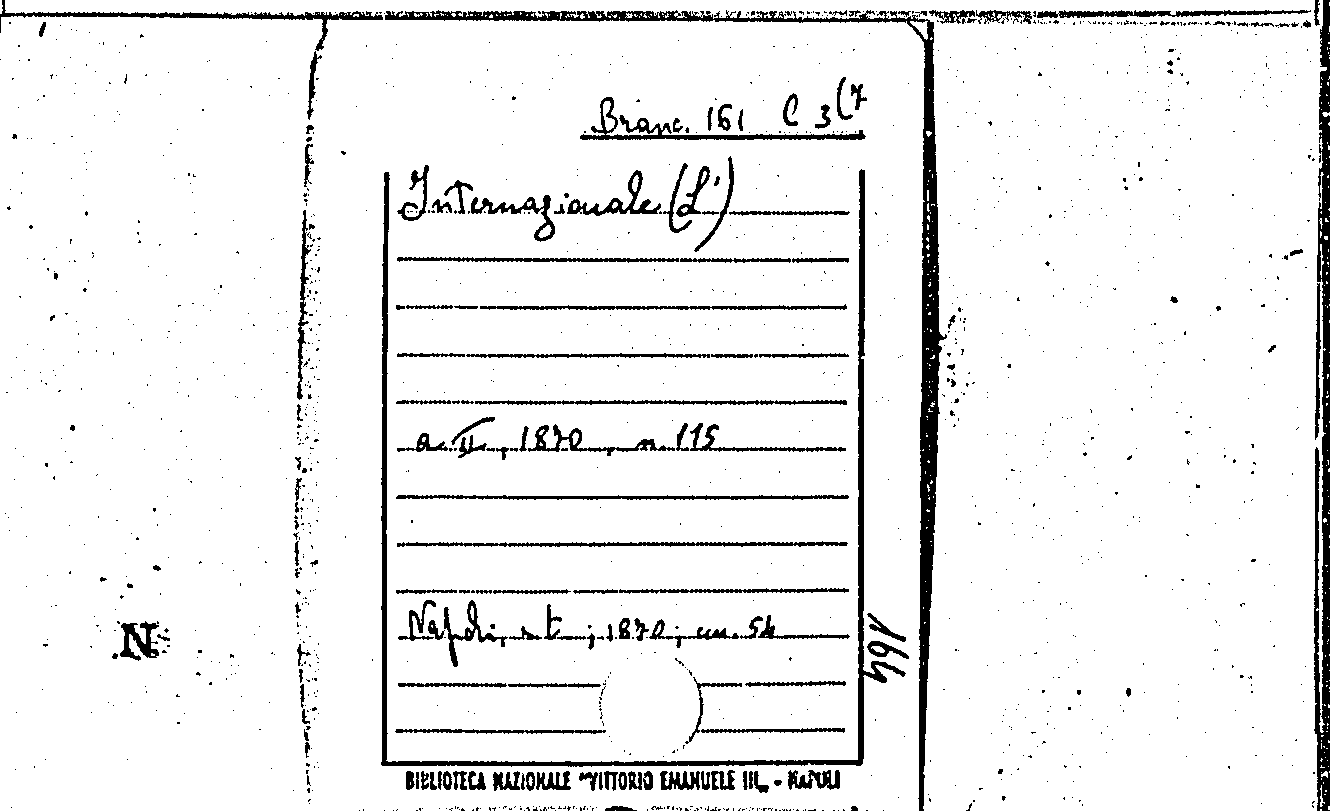 Branc. 161 C 3(7
Internazionale (L')
a. II, 1870, n. 115
Napoli, s. t.; 1870; cm. 54
164
N
BIBLIOTECA NAZIONALE "VITTORIO EMANUELE III„ - NAPOLI